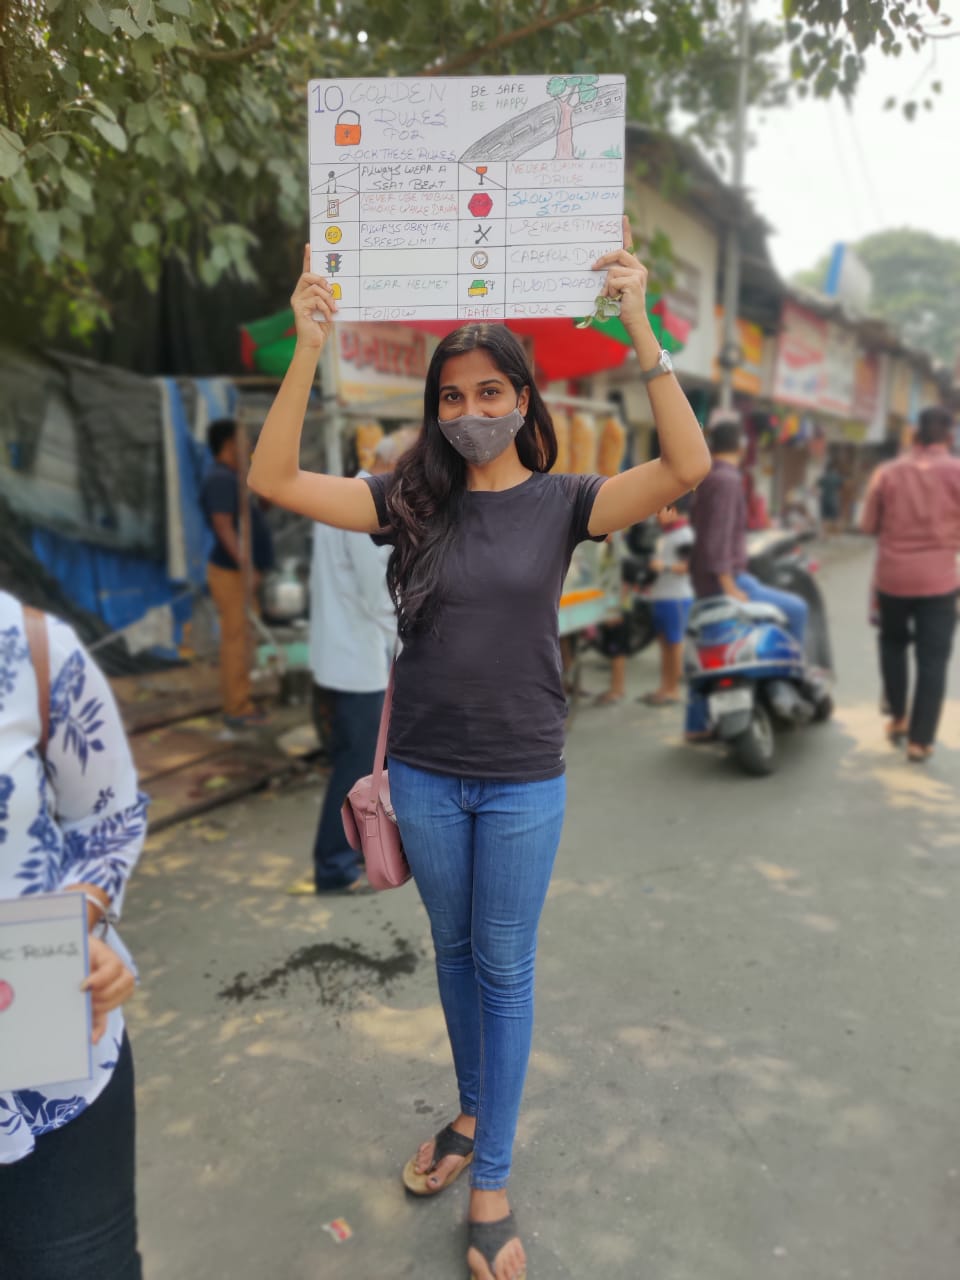 10 GOLDEN
RULES
FOR
LOCK THESE RULES
BE SAFE
BE HAPPY
ALWAYS WEAR A
SEAT BELT
NEVER DRINK AND
DRIVE
NEVER USE MOBILE
PHONE WHILE DRIVING
SLOW DOWN ON
STOP
50
ALWAYS OBEY THE
SPEED LIMIT
VEHICLE FITNESS
CAREFUL
WEAR HELMET
AVOID ROAD
FOLLOW TRAFFIC RULE
બનારસી
RULES